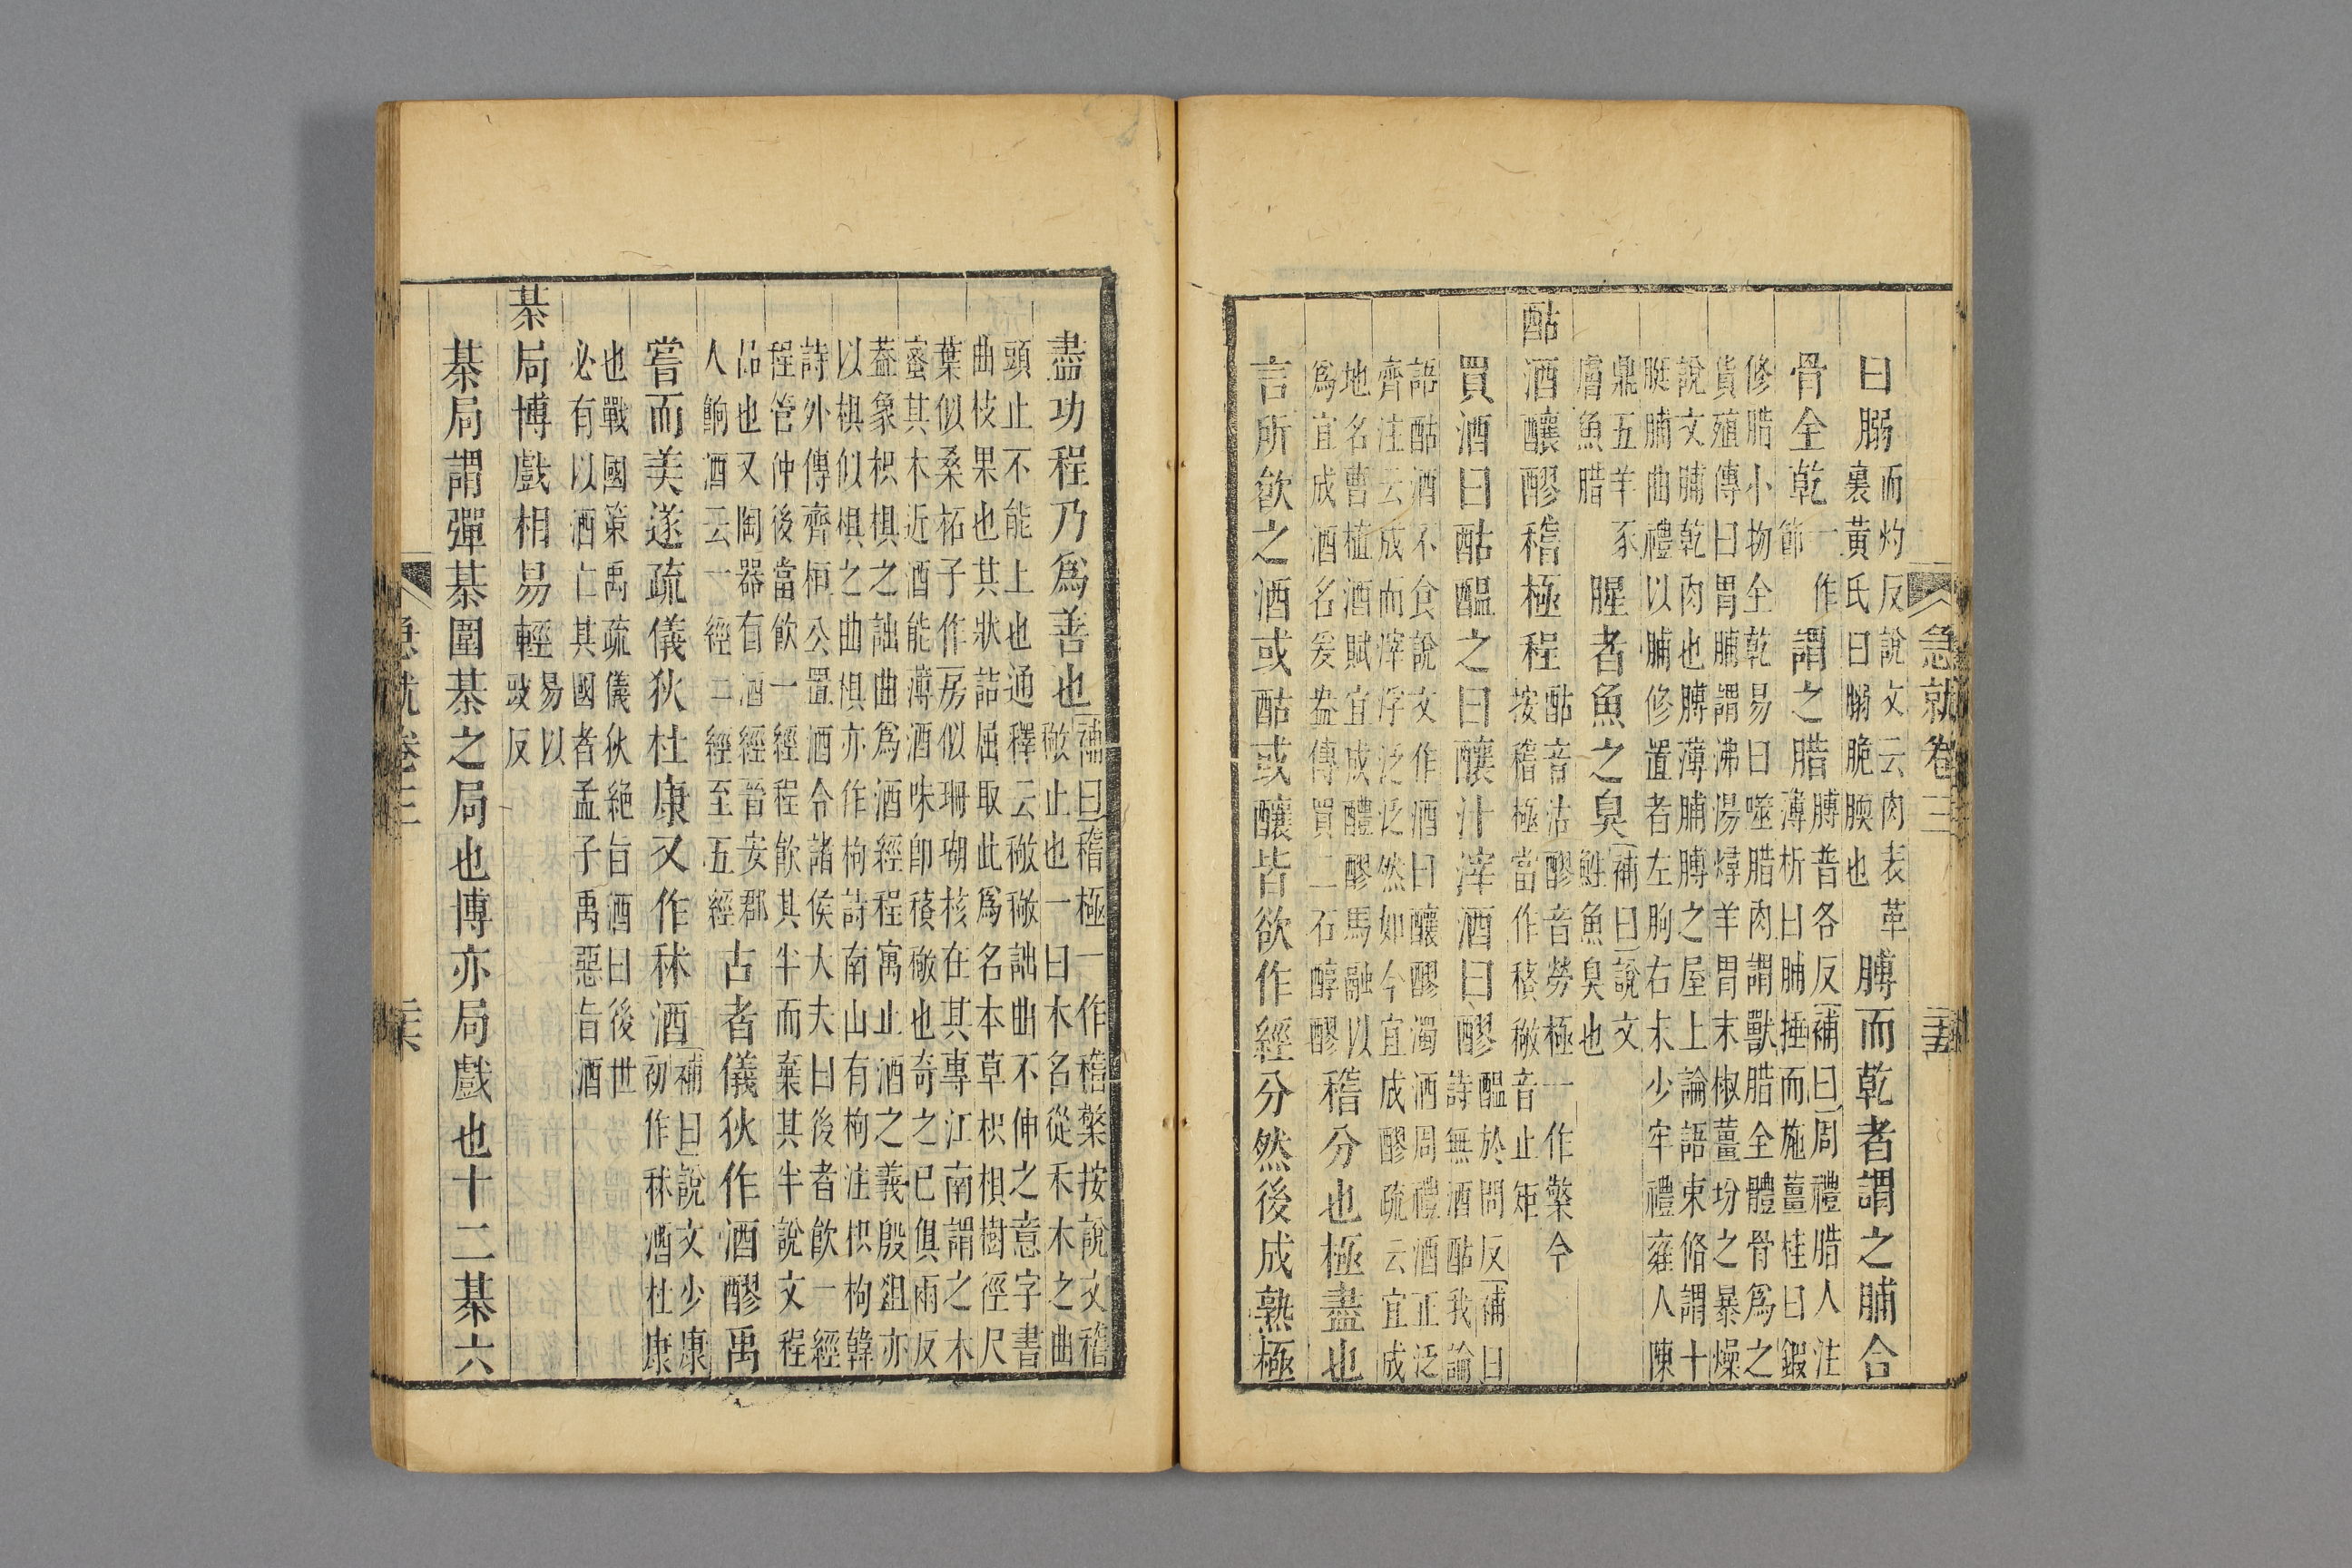 急就卷三
曰腏而灼反說文云肉表革
裏黃氏曰腏脆腝也膊而乾者謂之脯合
骨全乾一作
節謂之腊膊普各反補曰周禮腊人注
薄析曰脯捶而施薑桂曰鍜
修腊小物全乾易曰噬腊肉謂獸腊全體骨爲之
貨殖傳曰胃脯謂沸湯燖羊胃末椒薑坋之暴燥
說文脯乾肉也膊薄脯膊之屋上論語束脩謂十
脡脯曲禮以脯修置者左朐右末少牢禮雍人陳
鼎五羊豕
膚魚腊腥者魚之臭補曰說文
鮏魚臭也
酤酒釀醪稽極程酤音沽醪音勞極一作檕今
按稽極當作𥡴䅩音止矩
買酒曰酤醞之曰釀汁滓酒曰醪醞於問反補曰
詩無酒酤我論
語酤酒不食說文作酒曰釀醪濁酒周禮酒正泛
齊注云成而滓浮泛泛然如今宜成醪疏云宜成
地名曹植酒賦宜成醴醪馬融以
爲宜成酒名爰盎傳買二石醇醪稽分也極盡也
言所飲之酒或酤或釀皆欲作經分然後成熟極
盡功程乃爲善也補曰稽極一作稽檕按說文稽
䅩止也一曰木名從禾木之曲
頭止不能上也通釋云䅩䅩詘曲不伸之意字書
曲枝果也其狀詰屈取此爲名本草枳椇樹徑尺
葉似桑柘子作房似珊瑚核在其專江南謂之木
蜜其木近酒能薄酒味卽𥡴䅩也奇之已俱雨反
葢象枳椇之詘曲爲酒經程寓止酒之義殷俎亦
以椇似椇之曲椇亦作枸詩南山有枸注枳枸韓
詩外傳齊桓公置酒令諸侯大夫曰後者飲一經
程管仲後當飲一經程飲其半而棄其半說文程
品也又陶器有酒經晉安郡
人餉酒云一經二經至五經古者儀狄作酒醪禹
嘗而美遂疏儀狄杜康又作秫酒補曰說文少康
初作秫酒杜康
也戰國策禹疏儀狄絕旨酒曰後世
必有以酒亡其國者孟子禹惡旨酒
棊局博戲相易輕易以
豉反
棊局謂彈棊圍棊之局也博亦局戲也十二棊六
急就卷三